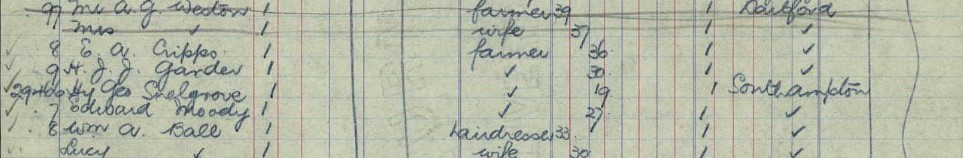 97 Mr A. G. Weston 1 farmer 39 1 Dartford
Mrs ✓ 1 wife 37 1 ✓
8 E. A. Cripps 1 farmer 36 1 ✓
9 H. J. J. Gander 1 ✓ 30 1 ✓
Hy Geo Snelgrove 1 ✓ 19 1 Southampton
7 Edward Moody 1 ✓ 27 1 ✓
8 Wm A. Ball 1 hairdresser 33 1 ✓
Lucy ✓ 1 wife 30 1 ✓